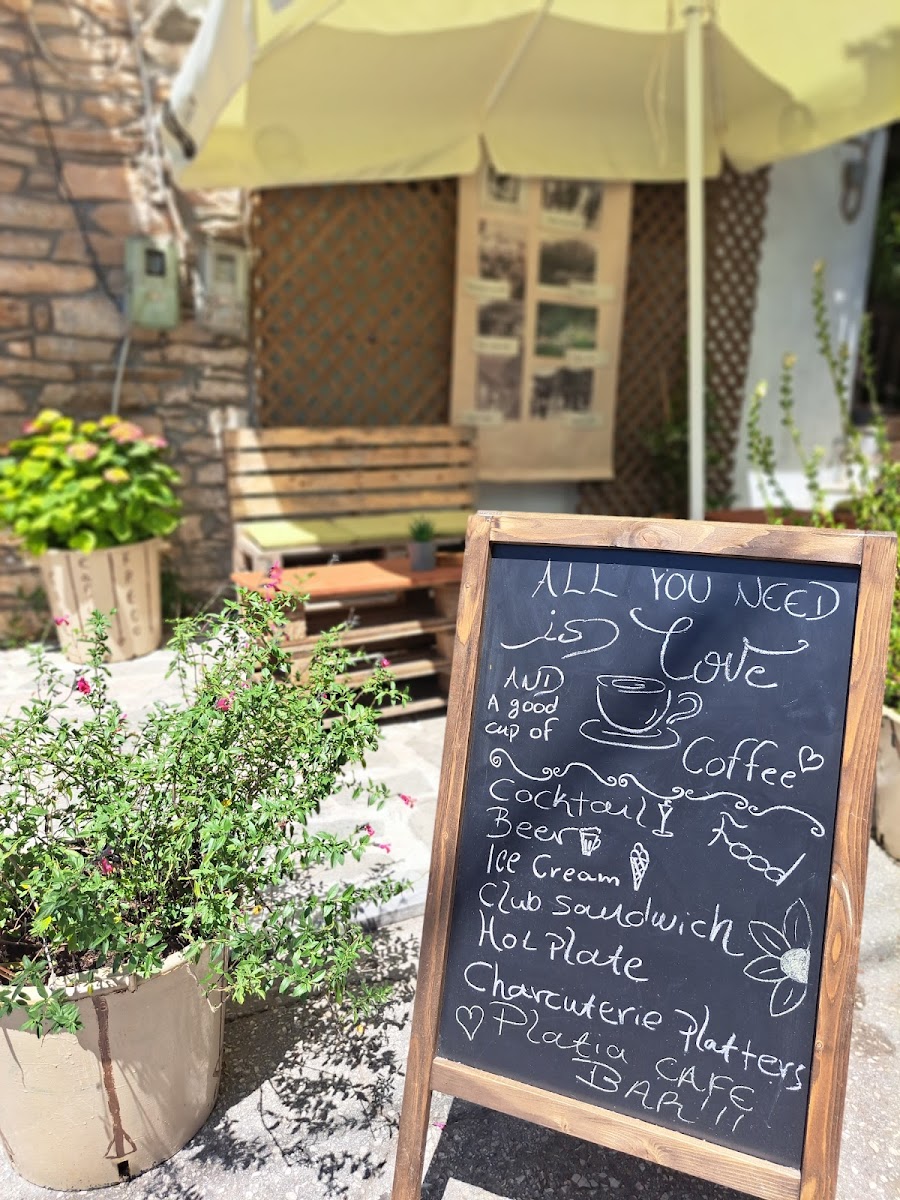 ALL YOU NEED
is Love
AND
A good
cup of
Coffee
Cocktail
Beer
Food
Ice Cream
Club Sandwich
Hot Plate
Charcuterie Platters
Platia CAFE
BAR!!!